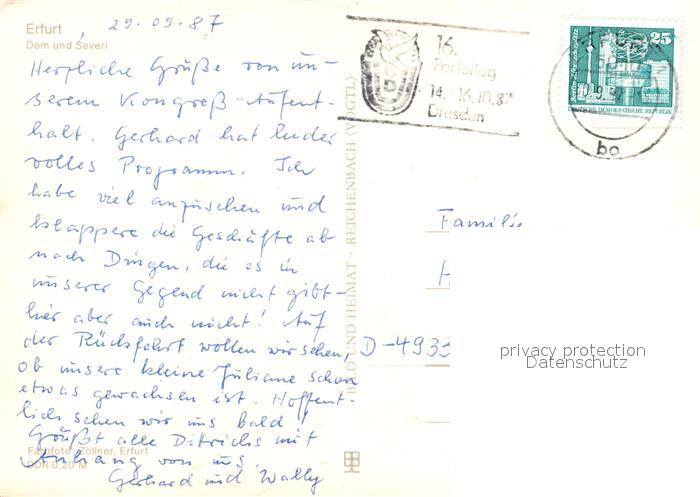 Erfurt, 29.09.87
Dom und Severi
Herzliche Grüße von un-
serem Kongreß-Aufent-
halt. Gerhard hat leider
volles Programm. Ich
habe viel anzusehen und
klappere die Geschäfte ab
nach Dingen, die es in
unserer Gegend nicht gibt-
hier aber auch nicht! Auf
der Rückfahrt wollen wir sehen,
ob unsere kleine Juliane schon
etwas gewachsen ist. Hoffent-
lich sehen wir uns bald!
Grüßt alle Ditrichs mit
Anhang von uns
Gerhard und Wally
Farbfoto: Zöllner, Erfurt
DDR 0,20 M
BILD UND HEIMAT · REICHENBACH (VOGTL)
16.
Parteitag
14.-16.10.87
Dresden
25
DEUTSCHE DEMOKRATISCHE REPUBLIK
bo
Familie
H
D-4933
privacy protection
Datenschutz